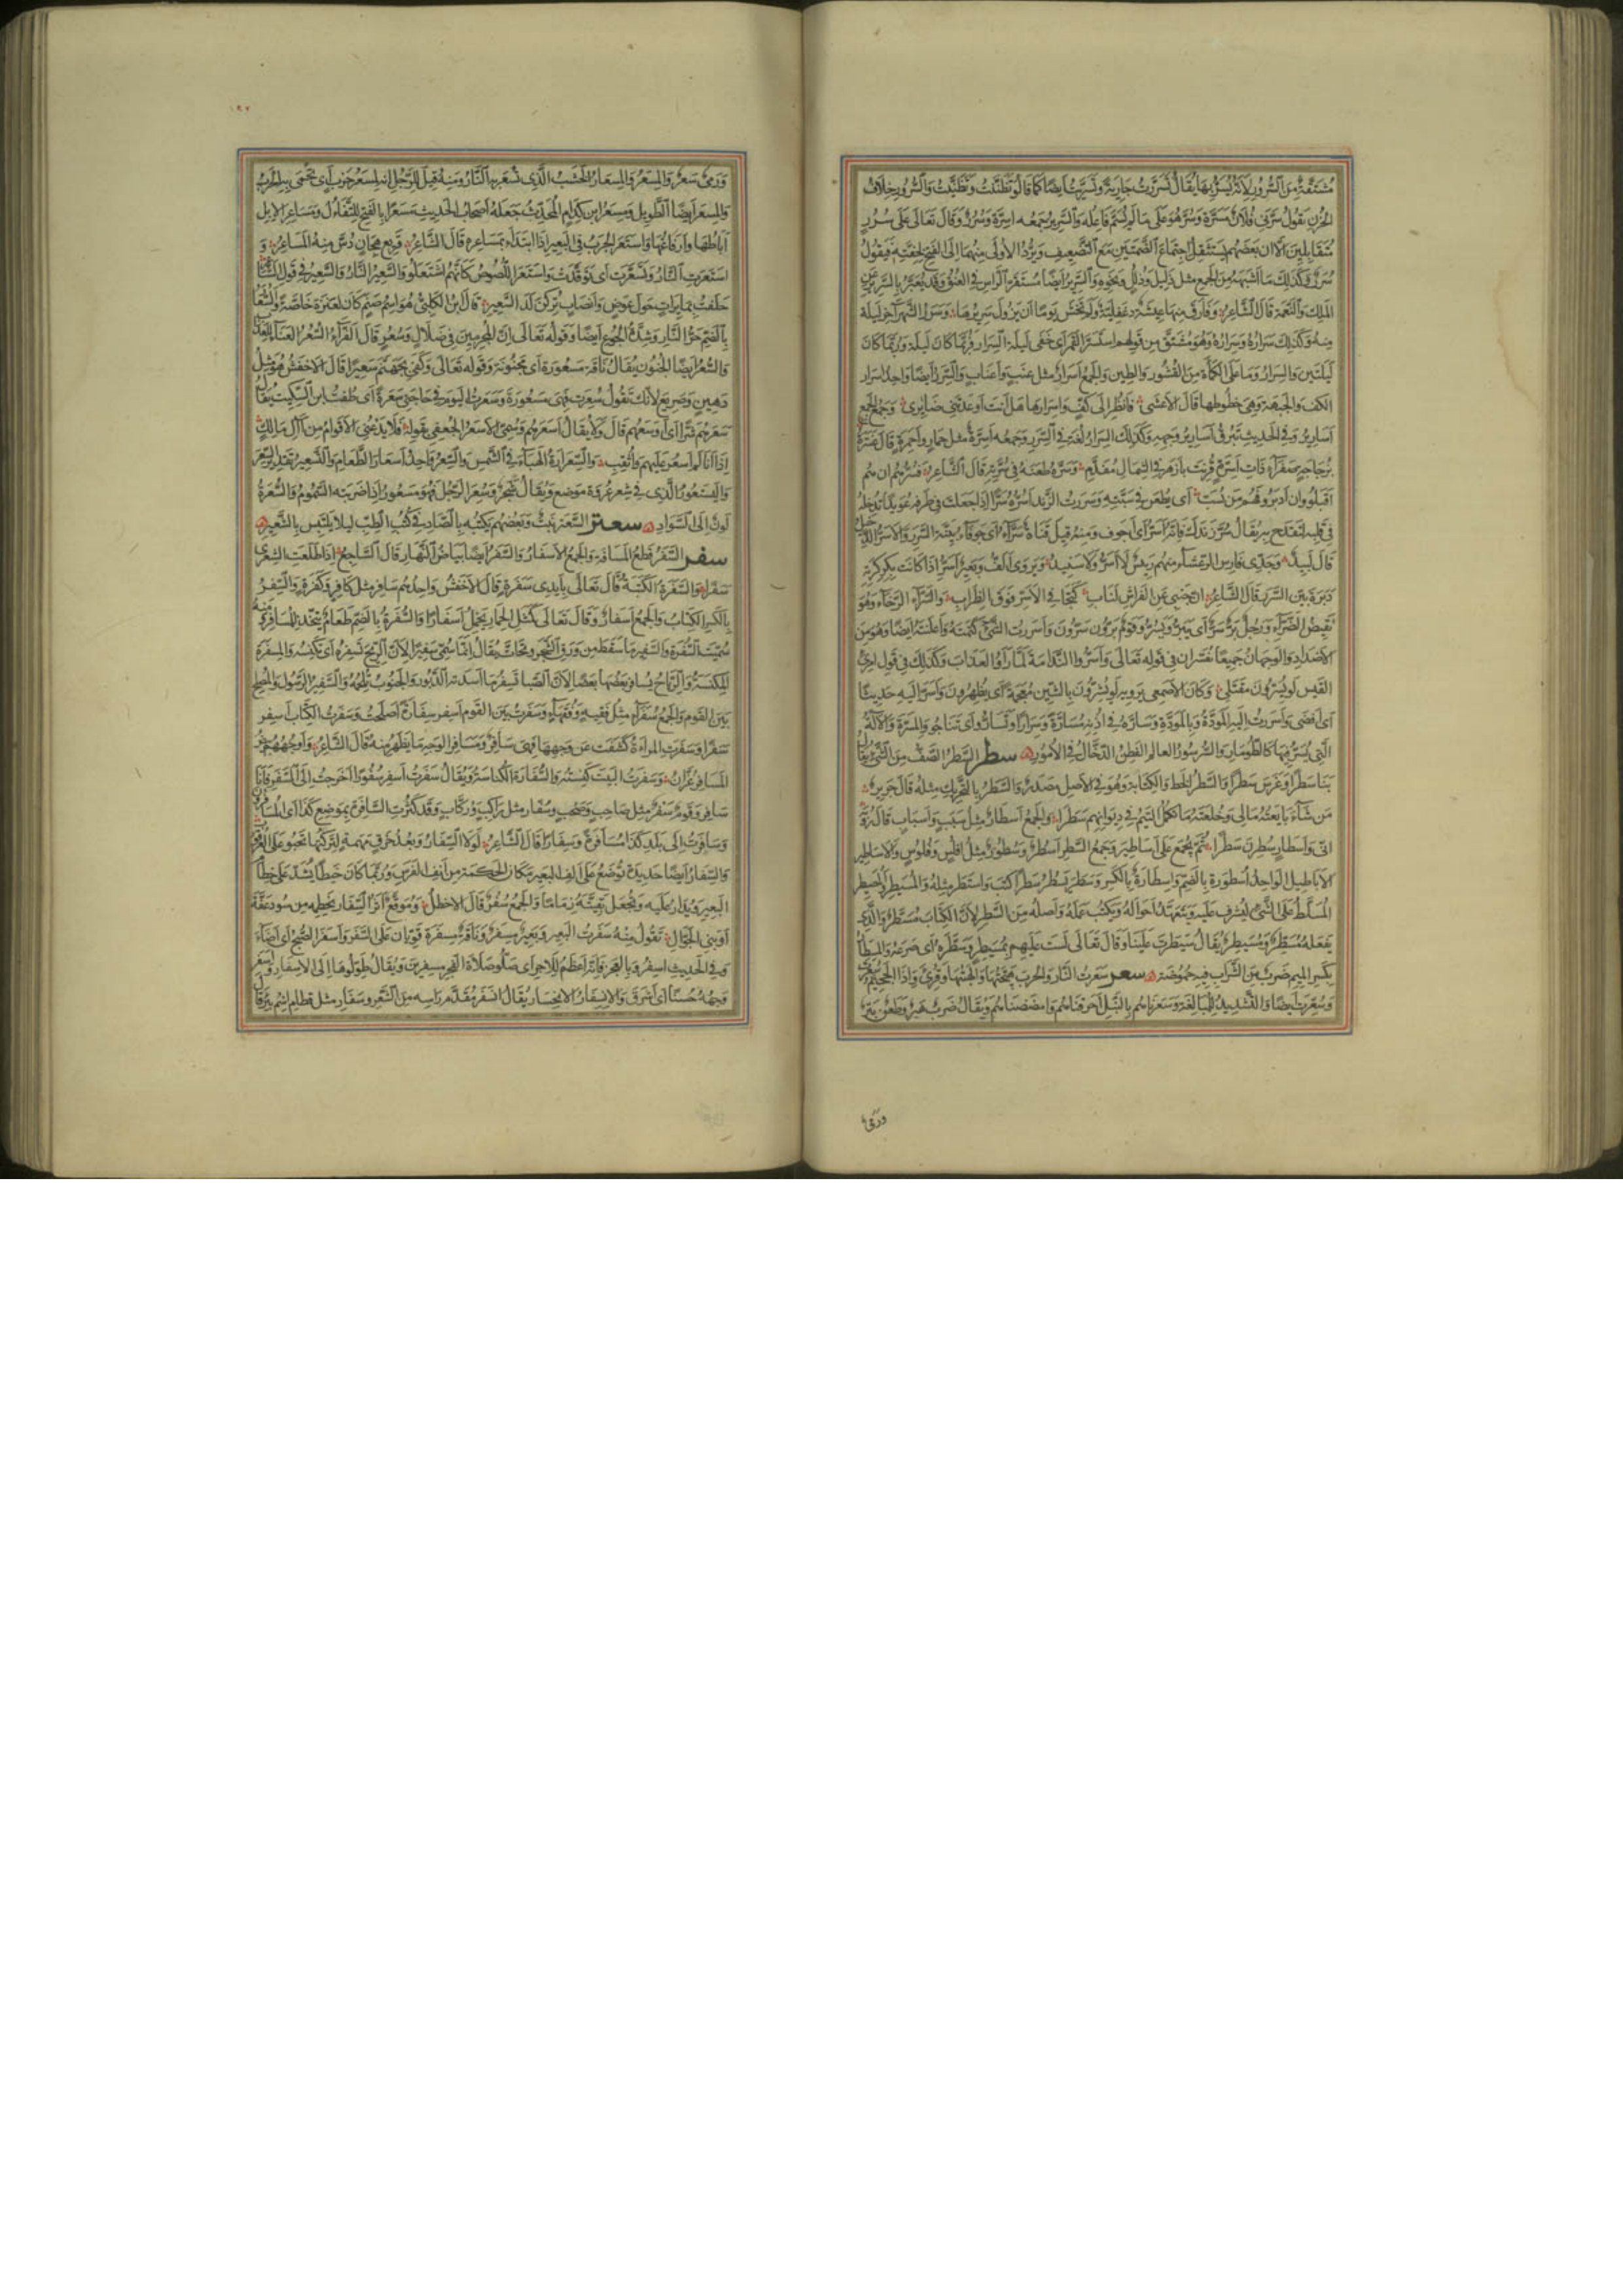 مُشتَقَّةٌ مِنَ السُّرُورِ لِأَنَّهُ يُسَرُّ بِهَا يُقَالُ تَسَرَّرْتُ جَارِيَةً وَتَسَرَّيْتُ أيضًا كَمَا قَالُوا تَظَنَّنْتُ وَتَظَنَّيْتُ وَالسُّرُورُ خِلَافُ
الحُزْنِ تَقُولُ سَرَّنِي فُلَانٌ مَسَرَّةً وَسُرَّ هُوَ عَلَى مَا لَمْ يُسَمَّ فَاعِلُه وَالسَّرِيرُ جَمْعُه أسِرَّةٌ وَسُرُرٌ وَقَالَ تَعَالَى عَلَى سُرُرٍ
مُتَقَابِلِينَ إلا ان بَعْضَهُم يَسْتَثْقِلُ اجْتِمَاعَ الضَّمَّتَيْنِ مَعَ التَّضْعِيفِ وَيَرُدُّ الأولَى مِنْهُمَا إلَى الفَتْحِ لِخِفَّتِهِ فَيَقُولُ
سُرَرٌ وَكَذلِكَ مَا أشْبَهَهُ مِنَ الجَمْعِ مِثْل ذَلِيل وَذُلُل وَنَحْوِهِ وَالسَّرِيرُ أيْضًا مُسْتَقَرُّ الرَّاسِ فِي العُنُقِ وَقَدْ يُعَبَّرُ بِالسَّرِيرِ عَنِ
المُلْكِ وَالنِّعْمَةِ قَالَ الشَّاعِرُ وَفَارَقَ مِنْهَا عِيشَةً دَغْفَلِيَّةً وَلَمْ تَخْشَ يَوْمًا أنْ يَزُولَ سَرِيرُهَا وَسَرَرُ الشَّهْرِ آخِرُ لَيْلَة
مِنهُ وَكَذلِكَ سَرَارُهُ وَسِرَارُهُ وَهُوَ مُشْتَقٌّ مِن قَوْلِهم اسْتَسَرَّ القَمَرُ أيْ خَفِيَ لَيْلَةَ السِّرَارِ فَرُبَّمَا كَانَ لَيْلَة وَرُبَّمَا كَانَ
لَيْلَتَيْنِ وَالسِّرَرُ وَمَا عَلَى الكَمْأةِ مِنَ القُشُورِ وَالطِّينِ وَالجَمْعُ أسْرَارٌ مِثْل عِنَبٍ وَأعْنَابٍ وَالسِّرَرُ أيْضًا وَاحِدُ أسْرَارِ
الكَفِّ وَالجَبْهَةِ وَهِيَ خُطُوطُهَا قَالَ الأعْشَى فَانْظُرْ إلَى كَفٍّ وَأسْرَارِهَا هَلْ أنْتَ إنْ أوْعَدْتَنِي ضَائِرِي وَجَمْعُ الجَمْعِ
أسَارِيرُ وَفِي الحَدِيثِ تَبْرُقُ أسَارِيرُ وَجْهِهِ وَكَذلِكَ السِّرَارُ لُغَةٌ فِي السِّرَرِ وَجَمْعُه أسِرَّةٌ مِثْل حِمَارٍ وَأحْمِرَةٍ قَالَ عَنْتَرَةُ
بِزُجَاجَةٍ صَفْرَاءَ ذَاتِ أسِرَّةٍ قُرِنَتْ بِأزْهَرَ فِي الشِّمَالِ مُفَدَّمِ وَسَرَّهُ طَعَنَهُ فِي سُرَّتِهِ قَالَ الشَّاعِرُ نَسُرُّهُم إنْ هُم
أقْبَلُوا وَإنْ أدْبَرُوا فَهُم مَن نَسُبّ أي نَطْعُن فِي سَبَّتِهِ وَسَرَرْتُ الزَّنْدَ أسُرُّهُ سَرًّا إذَا جَعَلْتَ فِي طَرَفِهِ عُوَيْدًا تُدْخِلُهُ
فِي قَلْبِهِ لِتَقْدَحَ بِهِ يُقَالُ سُرَّ زَنْدَكَ فَإنَّهُ أسَرُّ أيْ أجْوَف وَمِنْهُ قِيلَ قَنَاةٌ سَرَّاءُ أيْ جَوْفَاءُ بَيِّنَةُ السَّرَرِ وَالأسَرُّ الدَّخِيلُ
قَالَ لَبِيدٌ وَجَدِّي فَارِسُ الرَّعْشَاءِ مِنْهُم رَئِيسٌ لَا أسَرُّ وَلَا سَنِيدُ وَيُرْوَى ألَفُّ وَبَعِيرٌ أسَرُّ إذَا كَانَت بِكِرْكِرَتِهِ
دَبَرَةٌ بَيِّنُ السَّرَرِ قَالَ الشَّاعِرُ إنَّ جَنْبِي عَنِ الفِرَاشِ لَنَابٍ كَتَجَافِي الأسَرِّ فَوْقَ الظِّرَابِ وَالسَّرَّاءُ الرَّخَاءُ وَهُوَ
نَقِيضُ الضَّرَّاءِ وَرَجُلٌ بَرٌّ سَرٌّ أيْ يَبَرُّ وَيَسُرُّ وَقَوْمٌ بَرُّونَ سَرُّونَ وَأسْرَرْتُ الشَّيْءَ كَتَمْتُهُ وَأعْلَنْتُهُ أيْضًا وَهُوَ مِنَ
الأضْدَادِ وَالوَجْهَانِ جَمِيعًا يُفَسَّرَانِ فِي قَوْلِهِ تَعَالَى وَأسَرُّوا النَّدَامَةَ لَمَّا رَأوُا العَذَابَ وَكَذَلِكَ فِي قَوْلِ امْرِئِ
القَيْسِ لَوْ يُسِرُّونَ مَقْتَلِي وَكَانَ الأصْمَعِي يَرْوِيهِ لَوْ يُشِرُّونَ بِالشِّينِ مُعْجَمَةً أيْ يُظْهِرُونَ وَأسَرَّ إلَيْهِ حَدِيثًا
أيْ أفْضَى وَأسْرَرْتُ إلَيْهِ المَوَدَّةَ وَبِالمَوَدَّةِ وَسَارَّهُ فِي أُذُنِهِ مُسَارَّةً وَسِرَارًا وَتَسَارُّوا أيْ تَنَاجَوْا وَالمِسَرَّةُ الآلَةُ
الَّتِي يُسَرُّ فِيهَا كَالطُّومَارِ وَالسُّرْسُورُ العَالِمُ الفَطِنُ الدَّخَّالُ فِي الأُمُورِ سطر السَّطْرُ الصَّفُّ مِنَ الشَّيْءِ يُقَالُ
بَنَى سَطْرًا وَغَرَسَ سَطْرًا وَالسَّطْرُ الخَطُّ وَالكِتَابَةُ وَهُوَ فِي الأصْلِ مَصْدَرٌ وَالسَّطَرُ بِالتَّحْرِيكِ مِثْلُهُ قَالَ جَرِيرٌ
مَن شَاءَ بَايَعْتُهُ مَالِي وَخُلْعَتَهُ مَا تُكْمِلُ التَّيْمُ فِي دِيوَانِهِم سَطَرَا وَالجَمْعُ أسْطَارٌ مِثْلُ سَبَبٍ وَأسْبَابٍ قَالَ رُؤْبَةُ
إنِّي وَأسْطَارٍ سُطِرْنَ سَطْرَا ثُمَّ يُجْمَعُ عَلَى أسَاطِيرَ وَجَمْعُ السَّطْرِ أسْطُرٌ وَسُطُورٌ مِثْلُ أفْلُسٍ وَفُلُوسٍ وَالأسَاطِيرُ
الأبَاطِيلُ الوَاحِدُ أُسْطُورَةٌ بِالضَّمِّ وَإسْطَارَةٌ بِالكَسْرِ وَسَطَرَ يَسْطُرُ سَطْرًا كَتَبَ وَاسْتَطَرَ مِثْلُهُ وَالمُسَيْطِرُ وَالمُصَيْطِرُ
المُسَلَّطُ عَلَى الشَّيْءِ لِيُشْرِفَ عَلَيْهِ وَيَتَعَهَّدَ أحْوَالَهُ وَيَكْتُبَ عَمَلَهُ وَأصْلُهُ مِنَ السَّطْرِ لِأَنَّ الكِتَابَ مُسَطَّرٌ وَالَّذِي
يَفْعَلُهُ مُسَطِّرٌ وَمُسَيْطِرٌ يُقَالُ سَيْطَرْتَ عَلَيْنَا وَقَالَ تَعَالَى لَسْتَ عَلَيْهِم بِمُسَيْطِرٍ وَسَطَرَهُ أيْ صَرَعَهُ وَالمِسْطَارُ
بِكَسْرِ المِيمِ ضَرْبٌ مِنَ الشَّرَابِ فِيهِ حُمُوضَةٌ سعر سَعَرْتُ النَّارَ وَالحَرْبَ هَيَّجْتُهَا وَألْهَبْتُهَا وَقُرِئَ وَإذَا الجَحِيمُ سُعِرَتْ
وَسُعِّرَتْ أيْضًا وَالتَّشْدِيدُ لِلْمُبَالَغَةِ وَسَعَرْنَاهُم بِالنَّبْلِ أحْرَقْنَاهُم وَأمْضَضْنَاهُم وَيُقَالُ ضَرْبٌ هَبْرٌ وَطَعْنٌ نَتْرٌ
ورمى
وَرَمْيٌ سَعْرٌ وَالمِسْعَرُ وَالمِسْعَارُ الخَشَبُ الَّذِي تُسْعَرُ بِهِ النَّارُ وَمِنْهُ قِيلَ لِلرَّجُلِ إنَّهُ لَمِسْعَرُ حَرْبٍ أيْ تُحْمَى بِهِ الحَرْبُ
وَالمِسْعَرُ أيْضًا الطَّوِيلُ وَمِسْعَرُ ابن كِدَامٍ المُحَدِّثُ جَعَلَهُ أصْحَابُ الحَدِيثِ مَسْعَرًا بِالفَتْحِ لِلتَّفَاؤُلِ وَمَسَاعِرُ الإبِلِ
آبَاطُهَا وَأرْفَاغُهَا وَاسْتَعَرَ الجَرَبُ فِي البَعِيرِ إذَا ابْتَدَأ بِمَسَاعِرِهِ قَالَ الشَّاعِرُ قَرِيعُ هِجَانٍ دُسَّ مِنْهُ المَسَاعِرُ وَ
اسْتَعَرَتِ النَّارُ وَتَسَعَّرَتْ أيْ تَوَقَّدَتْ وَاسْتَعَرَ اللُّصُوصُ كَأنَّهُم اشْتَعَلُوا وَالسَّعِيرُ النَّارُ وَالسَّعِيرُ فِي قَوْلِ الشَّاعِرِ
حَلَفْتُ بِمَائِرَاتٍ حَوْلَ عَوْضٍ وَأنْصَابٍ تُرِكْنَ لَدَى السَّعِيرِ قَالَ ابْنُ الكَلْبِيِّ هُوَ اسْمُ صَنَمٍ كَانَ لِعَنَزَةَ خَاصَّةً وَالسُّعَارُ
بِالضَّمِّ حَرُّ النَّارِ وَشِدَّةُ الجُوعِ أيْضًا وَقَوْلُهُ تَعَالَى إنَّ المُجْرِمِينَ فِي ضَلَالٍ وَسُعُرٍ قَالَ الفَرَّاءُ السُّعُرُ العَنَاءُ وَالعَذَابُ
وَالسُّعُرُ أيْضًا الجُنُونُ يُقَالُ نَاقَةٌ مَسْعُورَةٌ أيْ مَجْنُونَةٌ وَقَوْلُه تَعَالَى وَكَفَى بِجَهَنَّمَ سَعِيرًا قَالَ الأخْفَشُ هُوَ مِثْلُ
دَهِينٍ وَصَرِيعٍ لِأنَّكَ تَقُولُ سُعِرَتْ فَهِيَ مَسْعُورَةٌ وَسَعَرْتُ اليَوْمَ فِي حَاجَتِي سَعْرَةً أيْ طُفْتُ ابنُ السِّكِّيتِ يُقَالُ
سَعَرَهُم شَرًّا أيْ أوْسَعَهُم قَالَ وَلَا يُقَالُ أسْعَرَهُم وَسُمِّيَ الأسْعَرُ الجُعْفِيُّ بِقَوْلِهِ فَلَا يَدْعُنِي الأقْوَامُ مِن آلِ مَالِكٍ
إذَا أنَا لَمْ أسْعُرْ عَلَيْهِم وَأُثْقِبِ وَالسَّعْرَارَةُ الهَبَاءُ فِي الشَّمْسِ وَالسِّعْرُ وَاحِدُ أسْعَارِ الطَّعَامِ وَالتَّسْعِيرُ تَقْدِيرُ السِّعْرِ
وَاليَسْتَعُورُ الَّذِي فِي شِعْرِ عُرْوَةَ مَوْضِعٌ وَيُقَالُ شَجَرٌ وَسُعِرَ الرَّجُلُ فَهُوَ مَسْعُورٌ إذَا ضَرَبَتْهُ السَّمُومُ وَالسُّعْرَةُ
لَوْنٌ إلَى السَّوَادِ سعتر السَّعْتَرُ نَبْتٌ وَبَعْضُهُم يَكْتُبُهُ بِالصَّادِ فِي كُتُبِ الطِّبِّ لِئَلَّا يَلْتَبِسَ بِالشَّعِيرِ
سفر السَّفَرُ قَطْعُ المَسَافَةِ وَالجَمْعُ الأسْفَارُ وَالسَّفَرُ أيْضًا بَيَاضُ النَّهَارِ قَالَ السَّاجِعُ إذَا طَلَعَتِ الشِّعْرَى
سَفَرًا وَالسَّفَرَةُ الكَتَبَةُ قَالَ تَعَالَى بِأيْدِي سَفَرَةٍ قَالَ الأخْفَشُ وَاحِدُهُم سَافِرٌ مِثْل كَافِرٍ وَكَفَرَةٍ وَالسِّفْرُ
بِالكَسْرِ الكِتَابُ وَالجَمْعُ أسْفَارٌ وَقَالَ تَعَالَى كَمَثَلِ الحِمَارِ يَحْمِلُ أسْفَارًا وَالسُّفْرَةُ بِالضَّمِّ طَعَامٌ يُتَّخَذُ لِلْمُسَافِرِ وَمِنْهُ
سُمِّيَتِ السُّفْرَةُ وَالسَّفِيرُ مَا سَقَطَ مِن وَرَقِ الشَّجَرِ وَتَحَاتَّ يُقَالُ إنَّمَا سُمِّيَ سَفِيرًا لِأنَّ الرِّيحَ تَسْفِرُهُ أيْ تَكْنِسُهُ وَالمِسْفَرَةُ
المِكْنَسَةُ وَالرِّيَاحُ يُسَافِرُ بَعْضُهَا بَعْضًا لِأنَّ الصَّبَا تَسْفِرُ مَا أسْدَتْهُ الدَّبُورُ وَالجَنُوبُ تُلْحِمُهُ وَالسَّفِيرُ الرَّسُولُ وَالمُصْلِحُ
بَيْنَ القَوْمِ وَالجَمْعُ سُفَرَاءُ مِثْلُ فَقِيهٍ وَفُقَهَاءَ وَسَفَرْتُ بَيْنَ القَوْمِ أسْفِرُ سِفَارَةً أصْلَحْتُ وَسَفَرْتُ الكِتَابَ أسْفِر
سَفْرًا وَسَفَرَتِ المَرْأةُ كَشَفَتْ عَن وَجْهِهَا فَهِيَ سَافِرٌ وَمَسَافِرُ الوَجْهِ مَا يَظْهَرُ مِنْهُ قَالَ الشَّاعِرُ وَأوْجُهُهُم بِيضُ
المَسَافِرِ غُرَّانُ وَسَفَرْتُ البَيْتَ كَنَسْتُهُ وَالسُّفَارَةُ الكُنَاسَةُ وَيُقَالُ سَفَرْتُ أسْفِرُ سُفُورًا خَرَجْتُ إلَى السَّفَرِ فَأنَا
سَافِرٌ وَقَوْمٌ سَفْرٌ مِثْل صَاحِبٍ وَصَحْبٍ وَسُفَّارٌ مِثْل رَاكِبٍ وَرُكَّابٍ وَقَدْ كَثُرَتِ السَّافِرَةُ بِمَوْضِعِ كَذَا أيِ المُسَافِرُونَ
وَسَافَرْتُ إلَى بَلَدِ كَذَا مُسَافَرَةً وَسِفَارًا قَالَ الشَّاعِرُ لَوْلَا السِّفَارُ وَبُعْدُ خَرْقٍ مَهْمَهٍ لَتَرَكْتُهَا تَحْبُو عَلَى العُرْقُوبِ
وَالسِّفَارُ أيْضًا حَدِيدَةٌ تُوضَعُ عَلَى أنْفِ البَعِيرِ مَكَانَ الحَكَمَةِ مِن أنْفِ الفَرَسِ وَرُبَّمَا كَانَ خَيْطًا يُشَدُّ عَلَى خِطَامِ
البَعِيرِ وَيُدَارُ عَلَيْهِ وَيُجْعَلُ بَقِيَّتُهُ زِمَامًا وَالجَمْعُ سُفُرٌ قَالَ الأخْطَلُ وَمُوَقَّعٍ أثَرُ السِّفَارِ بِخَطْمِهِ مِن سُودِ عَقَّةَ
أوْ بَنِي الجَوَّالِ تَقُولُ مِنْهُ سَفَرْتُ البَعِيرَ وَبَعِيرٌ مِسْفَرٌ وَنَاقَةٌ مِسْفَرَةٌ قَوِيَّانِ عَلَى السَّفَرِ وَأسْفَرَ الصُّبْحُ أيْ أضَاءَ
وَفِي الحَدِيثِ أسْفِرُوا بِالفَجْرِ فَإنَّهُ أعْظَمُ لِلْأجْرِ أيْ صَلُّوا صَلَاةَ الفَجْرِ مُسْفِرِينَ وَيُقَالُ طَوِّلُوهَا إلَى الإسْفَارِ وَأسْفَرَ
وَجْهُهُ حُسْنًا أيْ أشْرَقَ وَالانْسِفَارُ الانْحِسَارُ يُقَالُ انْسَفَرَ مُقَدَّمُ رَاسِهِ مِنَ الشَّعْرِ وَسَفَارِ مِثْل قَطَامِ اسْمُ بِئْرٍ قَالَ